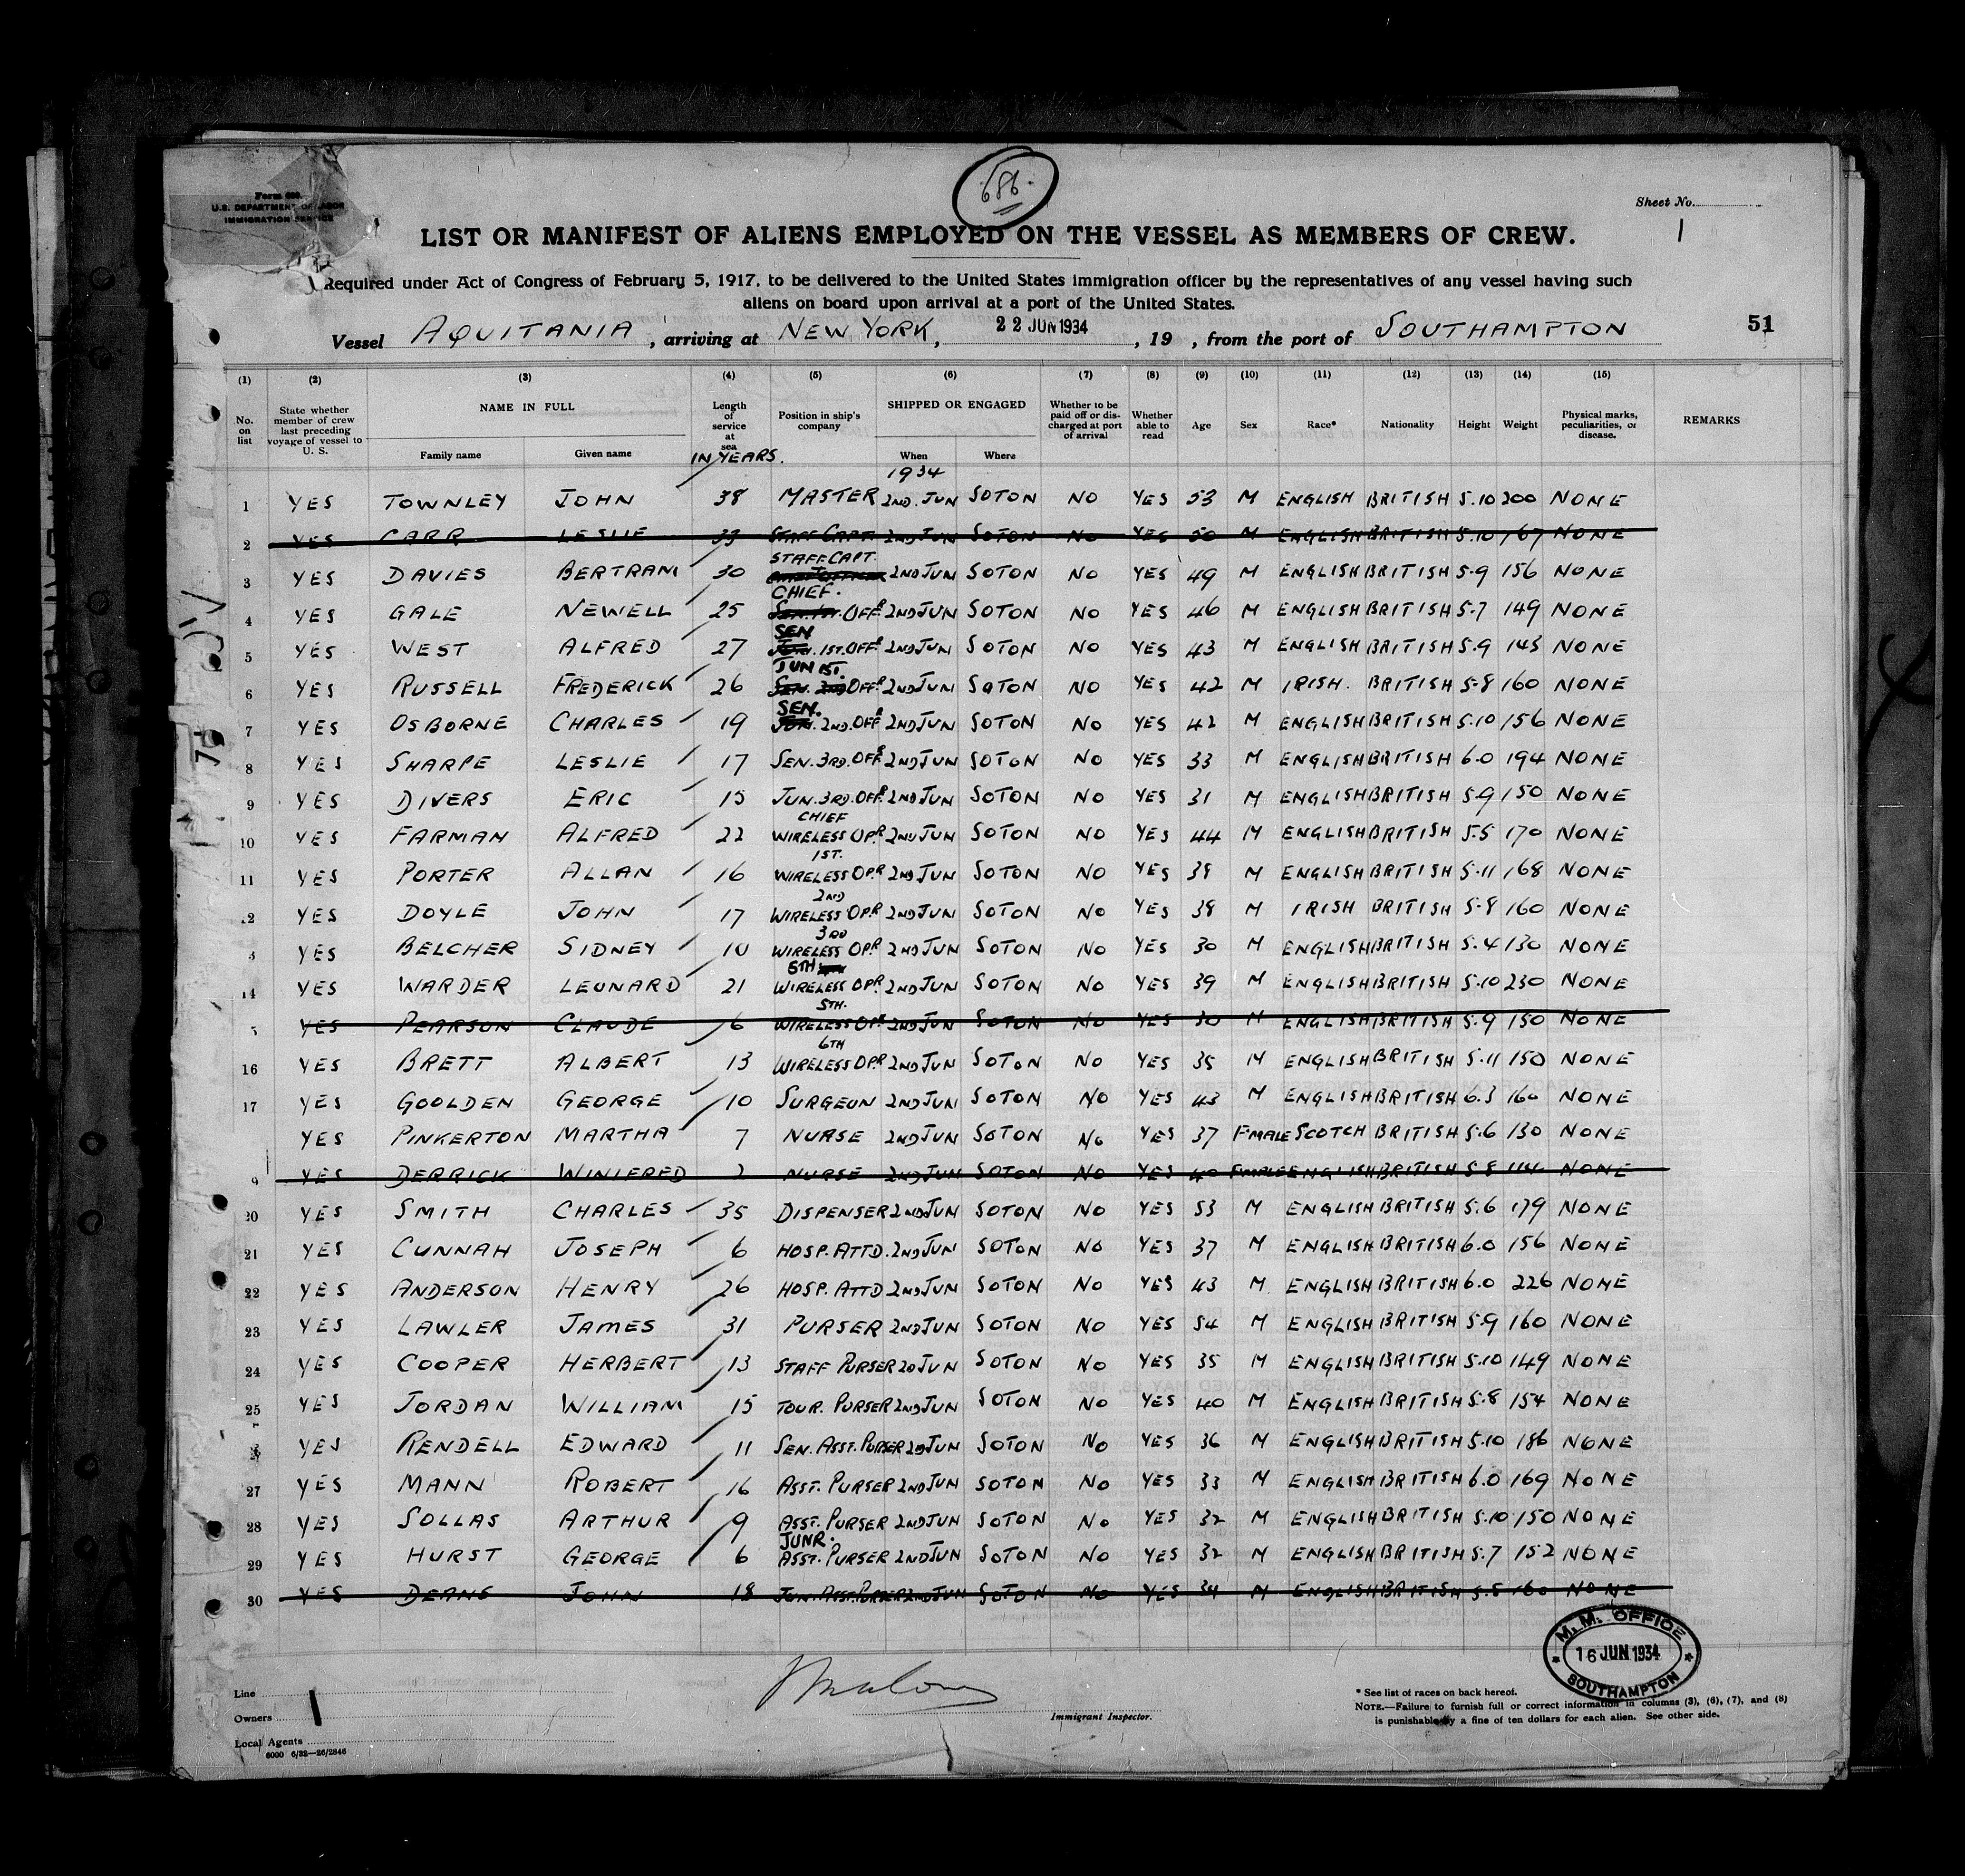 686.
Form 689.
U.S. DEPARTMENT OF LABOR
IMMIGRATION SERVICE
Sheet No.
1
LIST OR MANIFEST OF ALIENS EMPLOYED ON THE VESSEL AS MEMBERS OF CREW.
Required under Act of Congress of February 5, 1917, to be delivered to the United States immigration officer by the representatives of any vessel having such
aliens on board upon arrival at a port of the United States.
Vessel AQUITANIA, arriving at NEW YORK, 22 JUN 1934, 19 , from the port of SOUTHAMPTON
51
(1) (2) (3) (4) (5) (6) (7) (8) (9) (10) (11) (12) (13) (14) (15)
No. on list State whether member of crew last preceding voyage of vessel to U. S. NAME IN FULL Family name Given name Length of service at sea IN YEARS. Position in ship's company SHIPPED OR ENGAGED When Where Whether to be paid off or discharged at port of arrival Whether able to read Age Sex Race* Nationality Height Weight Physical marks, peculiarities, or disease. REMARKS
1934
1 YES TOWNLEY JOHN 38 MASTER 2ND. JUN SOTON NO YES 53 M ENGLISH BRITISH 5.10 200 NONE
2 YES CARR LESLIE 33 STAFF CAPT. 2ND JUN SOTON NO YES 50 M ENGLISH BRITISH 5.10 167 NONE
STAFF CAPT.
3 YES DAVIES BERTRAM 30 CHIEF OFFICER 2ND JUN SOTON NO YES 49 M ENGLISH BRITISH 5.9 156 NONE
CHIEF.
4 YES GALE NEWELL 25 SEN. 1ST. OFFR 2ND JUN SOTON NO YES 46 M ENGLISH BRITISH 5.7 149 NONE
SEN.
5 YES WEST ALFRED 27 JUN. 1ST. OFFR 2ND JUN SOTON NO YES 43 M ENGLISH BRITISH 5.9 145 NONE
JUN 1ST.
6 YES RUSSELL FREDERICK 26 SEN. 2ND OFFR 2ND JUN SOTON NO YES 42 M IRISH. BRITISH 5.8 160 NONE
SEN.
7 YES OSBORNE CHARLES 19 JUN. 2ND. OFFR 2ND JUN SOTON NO YES 42 M ENGLISH BRITISH 5.10 156 NONE
8 YES SHARPE LESLIE 17 SEN. 3RD. OFFR 2ND JUN SOTON NO YES 33 M ENGLISH BRITISH 6.0 194 NONE
9 YES DIVERS ERIC 15 JUN. 3RD. OFFR 2ND JUN SOTON NO YES 31 M ENGLISH BRITISH 5.9 150 NONE
CHIEF
10 YES FARMAN ALFRED 22 WIRELESS OPR 2ND JUN SOTON NO YES 44 M ENGLISH BRITISH 5.5 170 NONE
1ST.
11 YES PORTER ALLAN 16 WIRELESS OPR 2ND JUN SOTON NO YES 38 M ENGLISH BRITISH 5.11 168 NONE
2ND
12 YES DOYLE JOHN 17 WIRELESS OPR 2ND JUN SOTON NO YES 38 M IRISH BRITISH 5.8 160 NONE
3RD
3 YES BELCHER SIDNEY 10 WIRELESS OPR 2ND JUN SOTON NO YES 30 M ENGLISH BRITISH 5.4 130 NONE
5TH
14 YES WARDER LEONARD 21 WIRELESS OPR 2ND JUN SOTON NO YES 39 M ENGLISH BRITISH 5.10 230 NONE
5TH.
5 YES PEARSON CLAUDE 6 WIRELESS OPR 2ND JUN SOTON NO YES 30 M ENGLISH BRITISH 5.9 150 NONE
6TH
16 YES BRETT ALBERT 13 WIRELESS OPR 2ND JUN SOTON NO YES 35 M ENGLISH BRITISH 5.11 150 NONE
17 YES GOOLDEN GEORGE 10 SURGEON 2ND JUN SOTON NO YES 43 M ENGLISH BRITISH 6.3 160 NONE
YES PINKERTON MARTHA 7 NURSE 2ND JUN SOTON NO YES 37 FMALE SCOTCH BRITISH 5.6 130 NONE
9 YES DERRICK WINIFRED 2 NURSE 2ND JUN SOTON NO YES 40 FMALE ENGLISH BRITISH 5.8 NONE
20 YES SMITH CHARLES 35 DISPENSER 2ND JUN SOTON NO YES 53 M ENGLISH BRITISH 5.6 179 NONE
21 YES CUNNAH JOSEPH 6 HOSP. ATTD. 2ND JUN SOTON NO YES 37 M ENGLISH BRITISH 6.0 156 NONE
22 YES ANDERSON HENRY 26 HOSP. ATTD 2ND JUN SOTON NO YES 43 M ENGLISH BRITISH 6.0 226 NONE
23 YES LAWLER JAMES 31 PURSER 2ND JUN SOTON NO YES 54 M ENGLISH BRITISH 5.9 160 NONE
24 YES COOPER HERBERT 13 STAFF PURSER 2D JUN SOTON NO YES 35 M ENGLISH BRITISH 5.10 149 NONE
25 YES JORDAN WILLIAM 15 TOUR. PURSER 2ND JUN SOTON NO YES 40 M ENGLISH BRITISH 5.8 154 NONE
YES RENDELL EDWARD 11 SEN. ASST. PURSER 2ND JUN SOTON NO YES 36 M ENGLISH BRITISH 5.10 186 NONE
27 YES MANN ROBERT 16 ASST. PURSER 2ND JUN SOTON NO YES 33 M ENGLISH BRITISH 6.0 169 NONE
28 YES SOLLAS ARTHUR 9 ASST. PURSER 2ND JUN SOTON NO YES 32 M ENGLISH BRITISH 5.10 150 NONE
JUNR.
29 YES HURST GEORGE 6 ASST. PURSER 2ND JUN SOTON NO YES 32 M ENGLISH BRITISH 5.7 152 NONE
30 YES DEANS JOHN 18 JUN. ASST. PURSER 2ND JUN SOTON NO YES 34 M ENGLISH BRITISH 5.8 160 NONE
M. M. OFFICE
16 JUN 1934
SOUTHAMPTON
Line
Owners
Local Agents
6000 6/32—26/2846
Immigrant Inspector.
* See list of races on back hereof.
NOTE.—Failure to furnish full or correct information in columns (3), (6), (7), and (8)
is punishable by a fine of ten dollars for each alien. See other side.